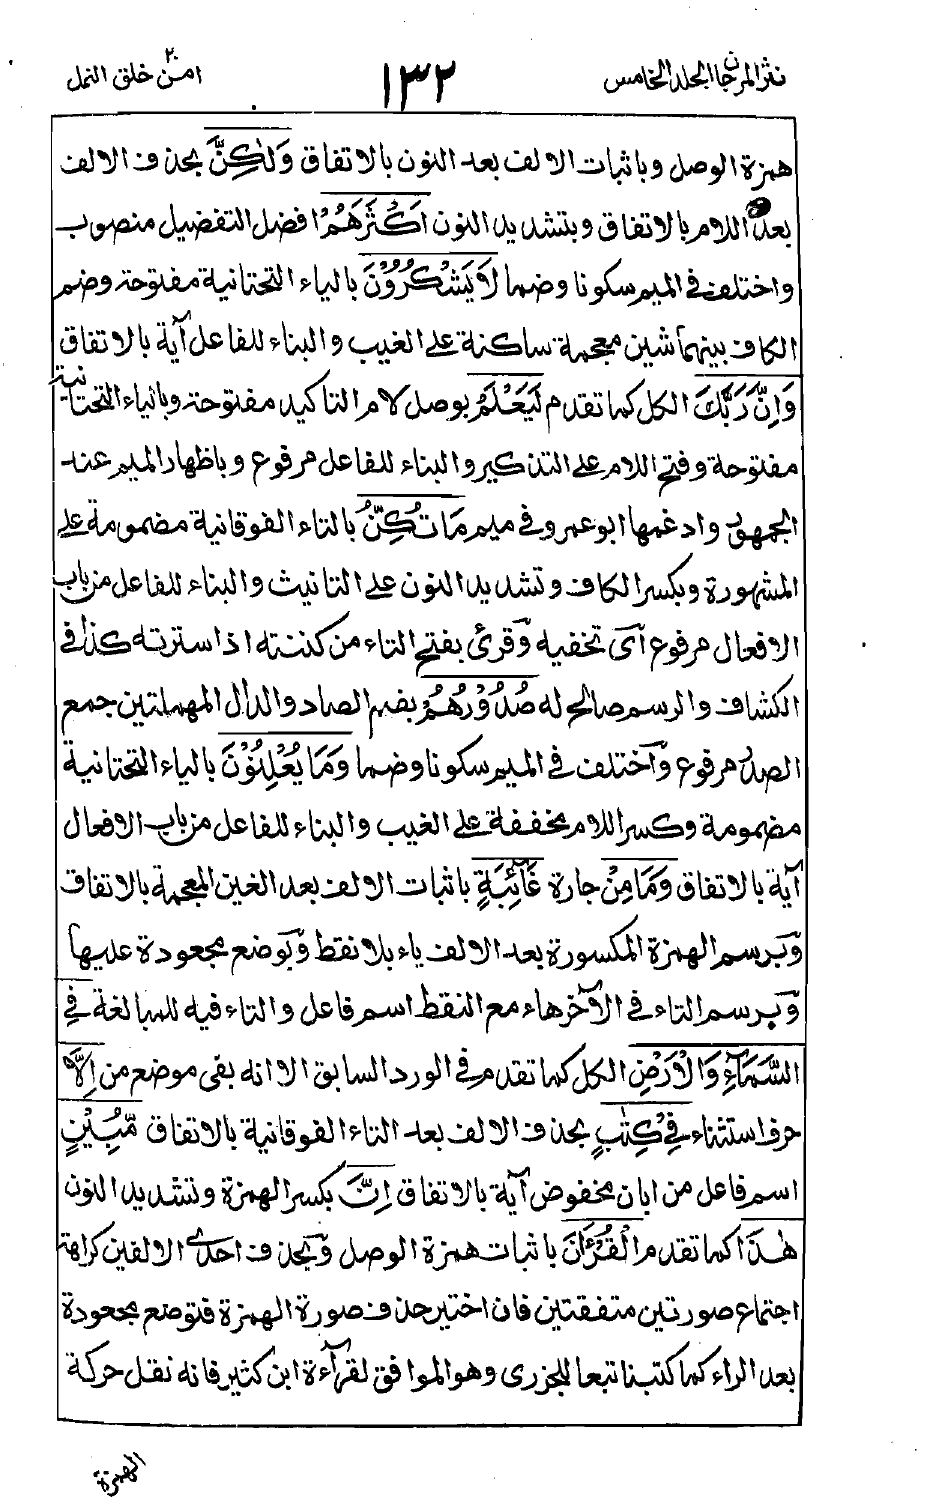 نثر المرجان المجلد الخامس ١٣٢ امن خلق ٢٠ النمل
همزة الوصل وباثبات الالف بعد النون بالاتفاق وَلٰكِنَّ بحذف الالف
بعد اللام بالاتفاق وبتشديد النون اَكْثَرَهُمْ افضل التفضيل منصوب
واختلف في الميم سكونا وضما لَا يَشْكُرُوْنَ بالياء التحتانية مفتوحة وضم
الكاف بينهما شين معجمة ساكنة على الغيب والبناء للفاعل آية بالاتفاق
وَاِنَّ رَبَّكَ الكل كما تقدم لَيَعْلَمُ بوصل لام التاكيد مفتوحة وبالياء التحتانية
مفتوحة وفتح اللام على التذكير والبناء للفاعل مرفوع وباظهار الميم عند
الجمهور وادغمها ابو عمرو في ميم مَا تُكِنُّ بالتاء الفوقانية مضمومة على
المشهورة وبكسر الكاف وتشديد النون على التانيث والبناء للفاعل من باب
الافعال مرفوع اَى تخفيه وَقرئ بفتح التاء من كننته اذا سترته كذا في
الكشاف والرسم صالح له صُدُوْرُهُمْ بضم الصاد والدال المهملتين جمع
الصدر مرفوع وَاختلف في الميم سكونا وضما وَمَا يُعْلِنُوْنَ بالياء التحتانية
مضمومة وكسر اللام مخففة على الغيب والبناء للفاعل من باب الافعال
آية بالاتفاق وَمَا مِنْ جارة غَآئِبَةٍ باثبات الالف بعد الغين المعجمة بالاتفاق
وَبرسم الهمزة المكسورة بعد الالف ياء بلا نقط وَبوضع مجعودة عليها
وَبرسم التاء في الآخر هاء مع النقط اسم فاعل والتاء فيه للمبالغة فِي
السَّمَآءِ وَالْاَرْضِ الكل كما تقدم في الورد السابق الا انه بقى موضع من اِلَّا
حرف استثناء فِيْ كِتٰبٍ بحذف الالف بعد التاء الفوقانية بالاتفاق مُّبِيْنٍ
اسم فاعل من ابان مخفوض آية بالاتفاق اِنَّ بكسر الهمزة وتشديد النون
هٰذَا كما تقدم الْقُرْءَانَ باثبات همزة الوصل وَبحذف احدى الالفين كراهة
اجتماع صورتين متفقتين فان اختير حذف صورة الهمزة فتوضع مجعودة
بعد الراء كما كتبنا تبعا للجزرى وهو الموافق لقرآءة ابن كثير فانه نقل حركة
الهمزة